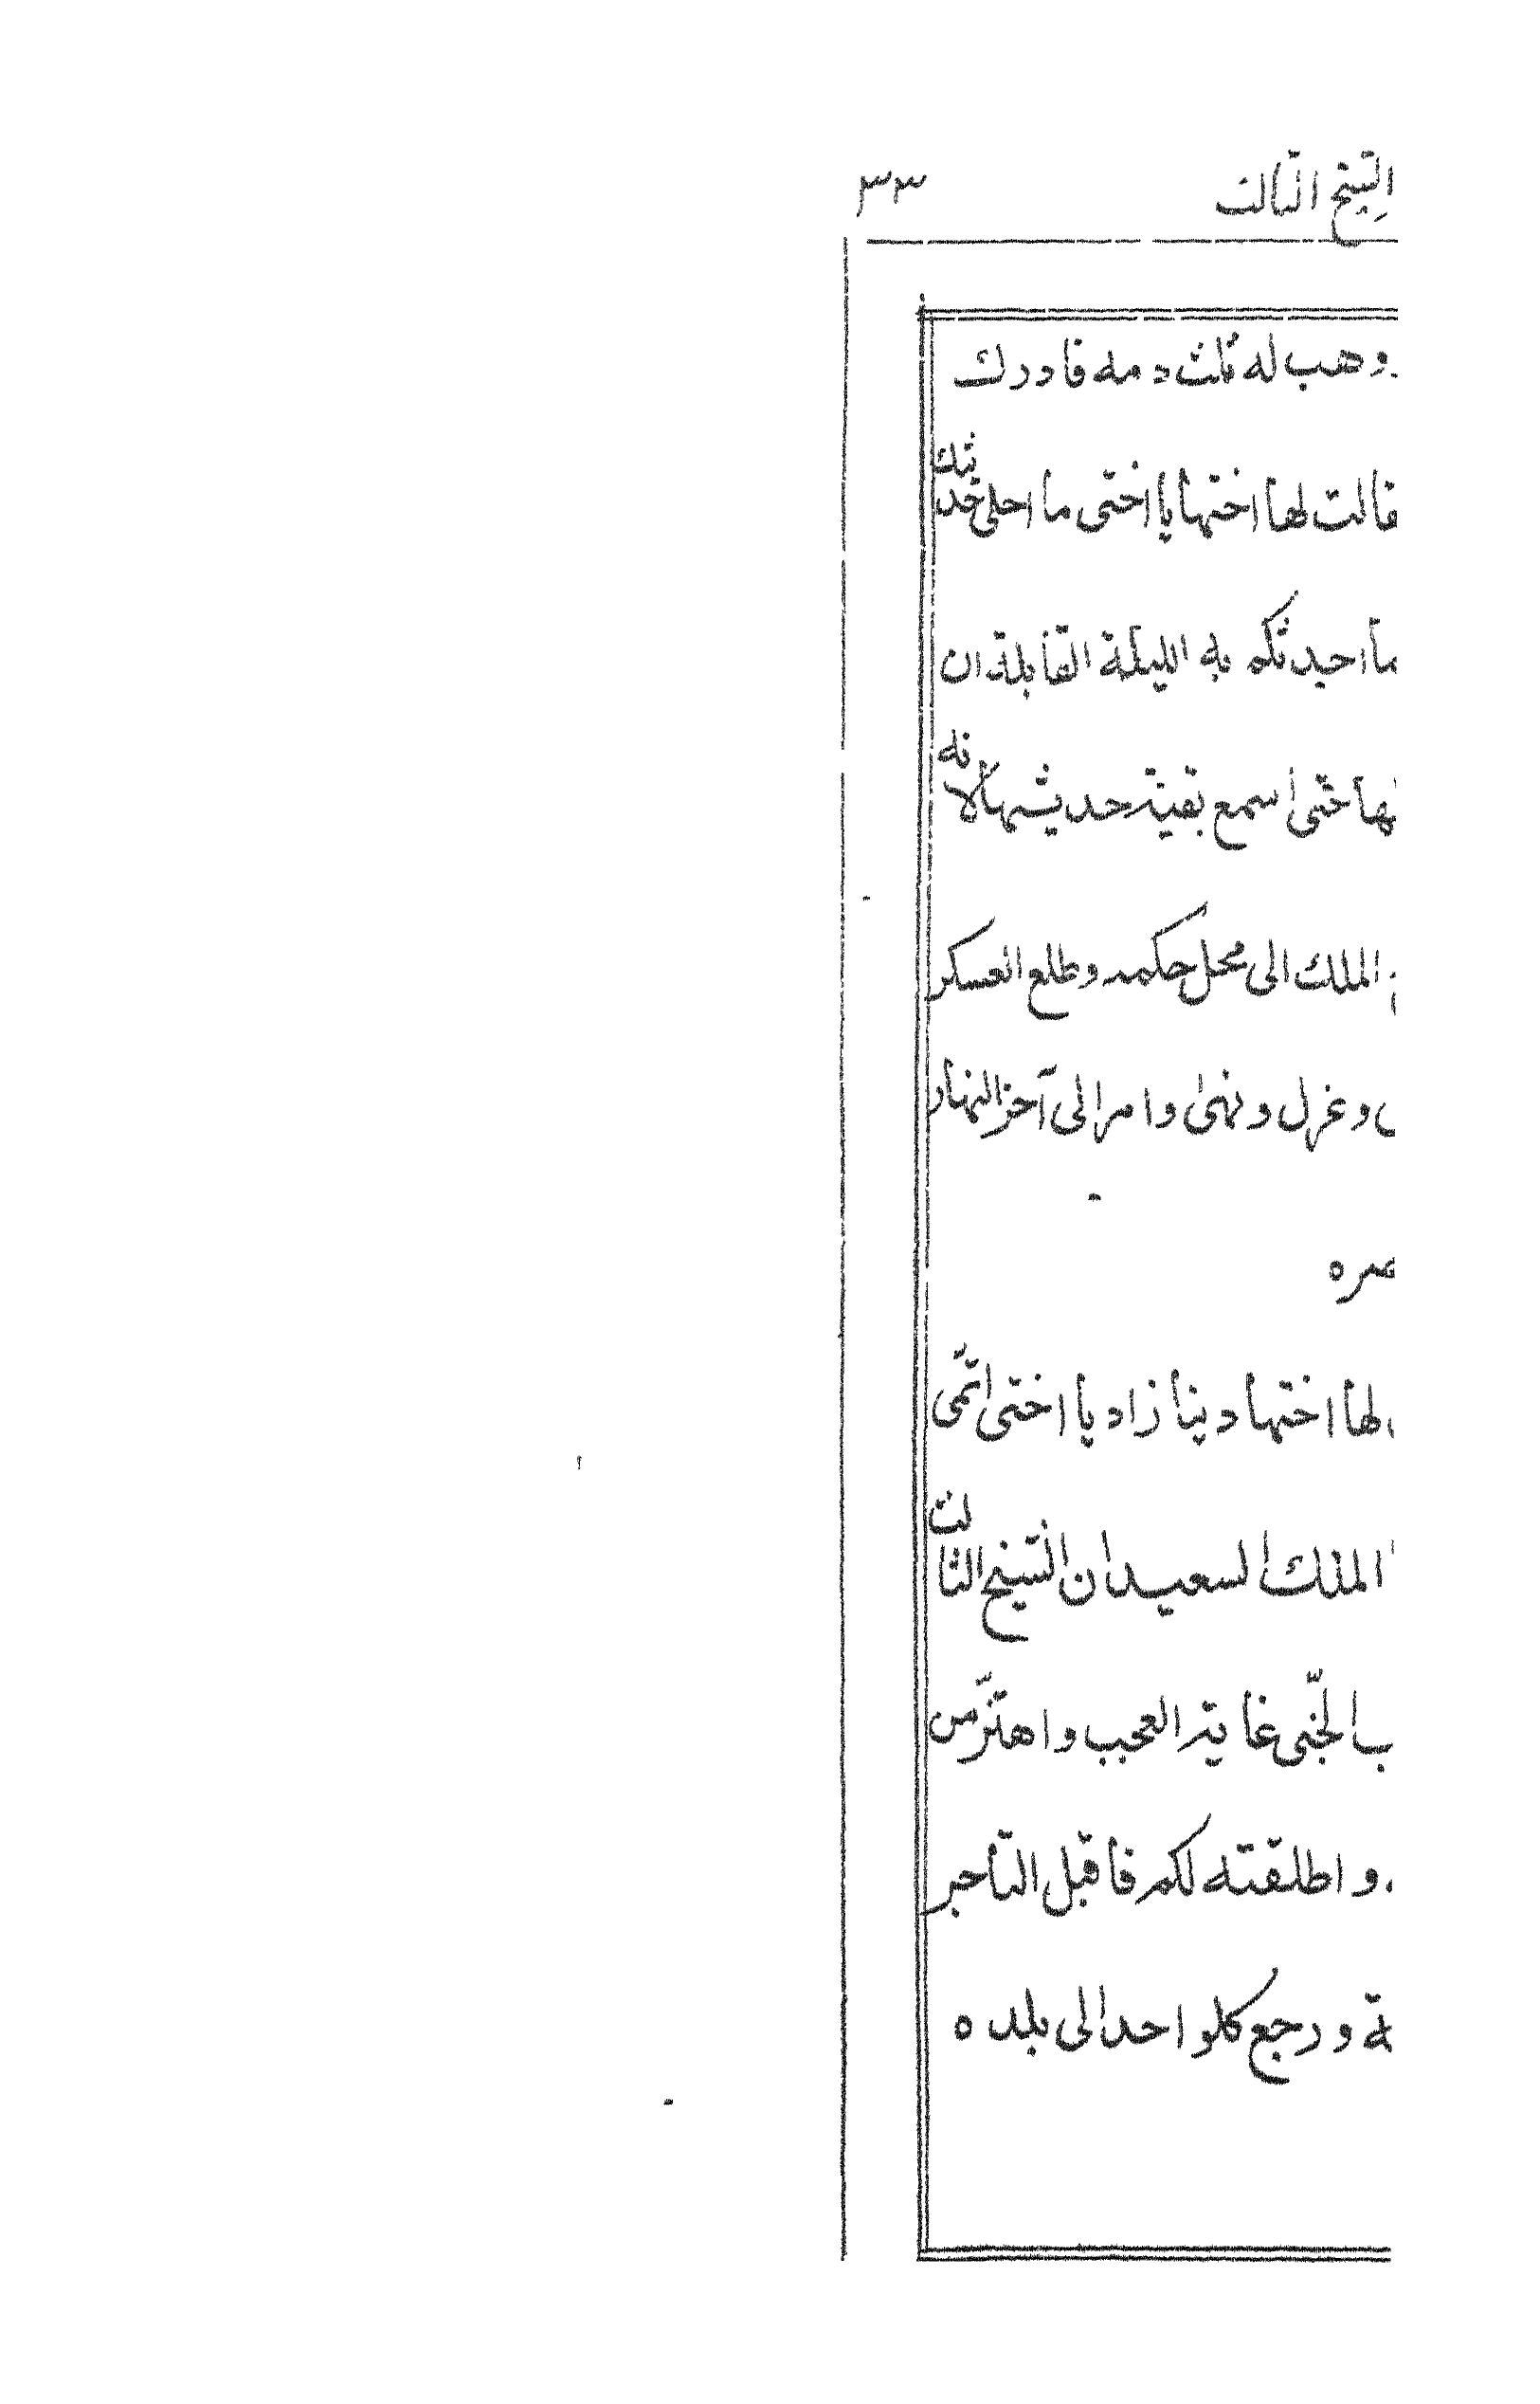 الشيخ الثالث ٣٣
وهب له ثلث دمه فادرك
فقالت لها اختها يا اختى ما احلى حديثك
ما احدثكم به الليلة القابلة ان
حتىٰ اسمع بقيّة حديثها لانه
الملك الى محل حكمه وطلع العسكر
وعزل ونهىٰ وامر الى آخر النهار
لها اختها دينا زاد يا اختى اتمّى
الملك السعيد ان الشيخ الثالث
الجّنى غاية العجب واهتزّ من
واطلقته لكم فاقبل التاجر
ورجع كلواحد الى بلده ه